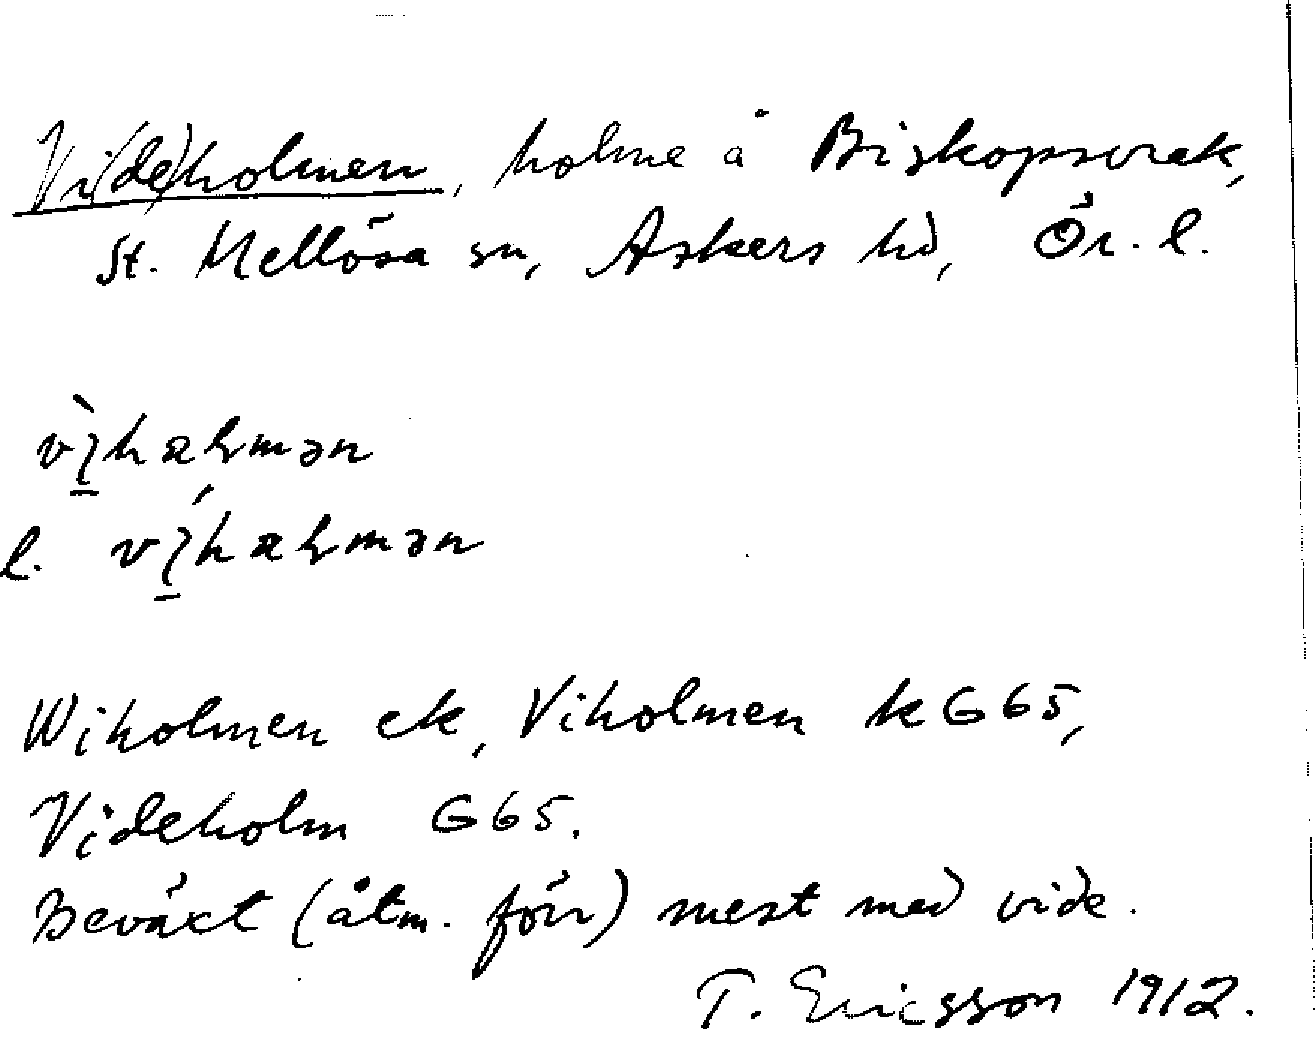 Vi(de)holmen, holme å Biskopsvrak,
St. Mellösa sn, Askers hd, Ör. l.
l.
Wiholmen ek, Viholmen kG65,
Videholm G65.
Beväxt (åtm. förr) mest med vide.
T. Ericsson 1912.